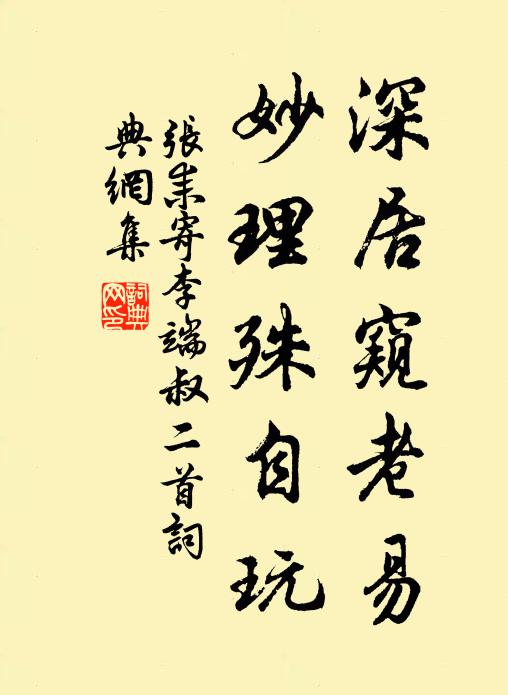 深居窺老易
妙理殊自玩
張耒寄李端叔二首詞
典網集
詞典網印